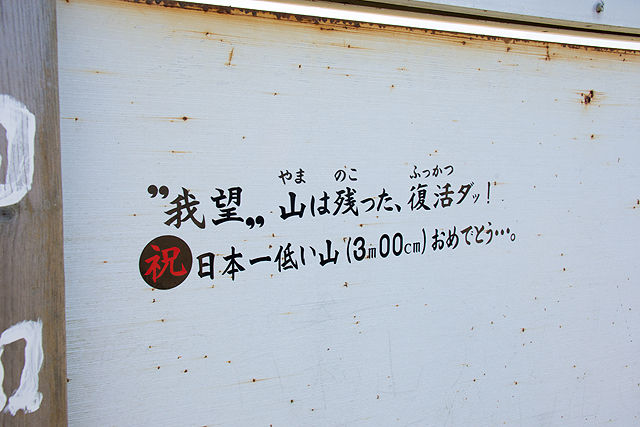 やま のこ ふっかつ
”我望„山は残った、復活ダッ!
祝日本一低い山(3m00cm)おめでとう…。